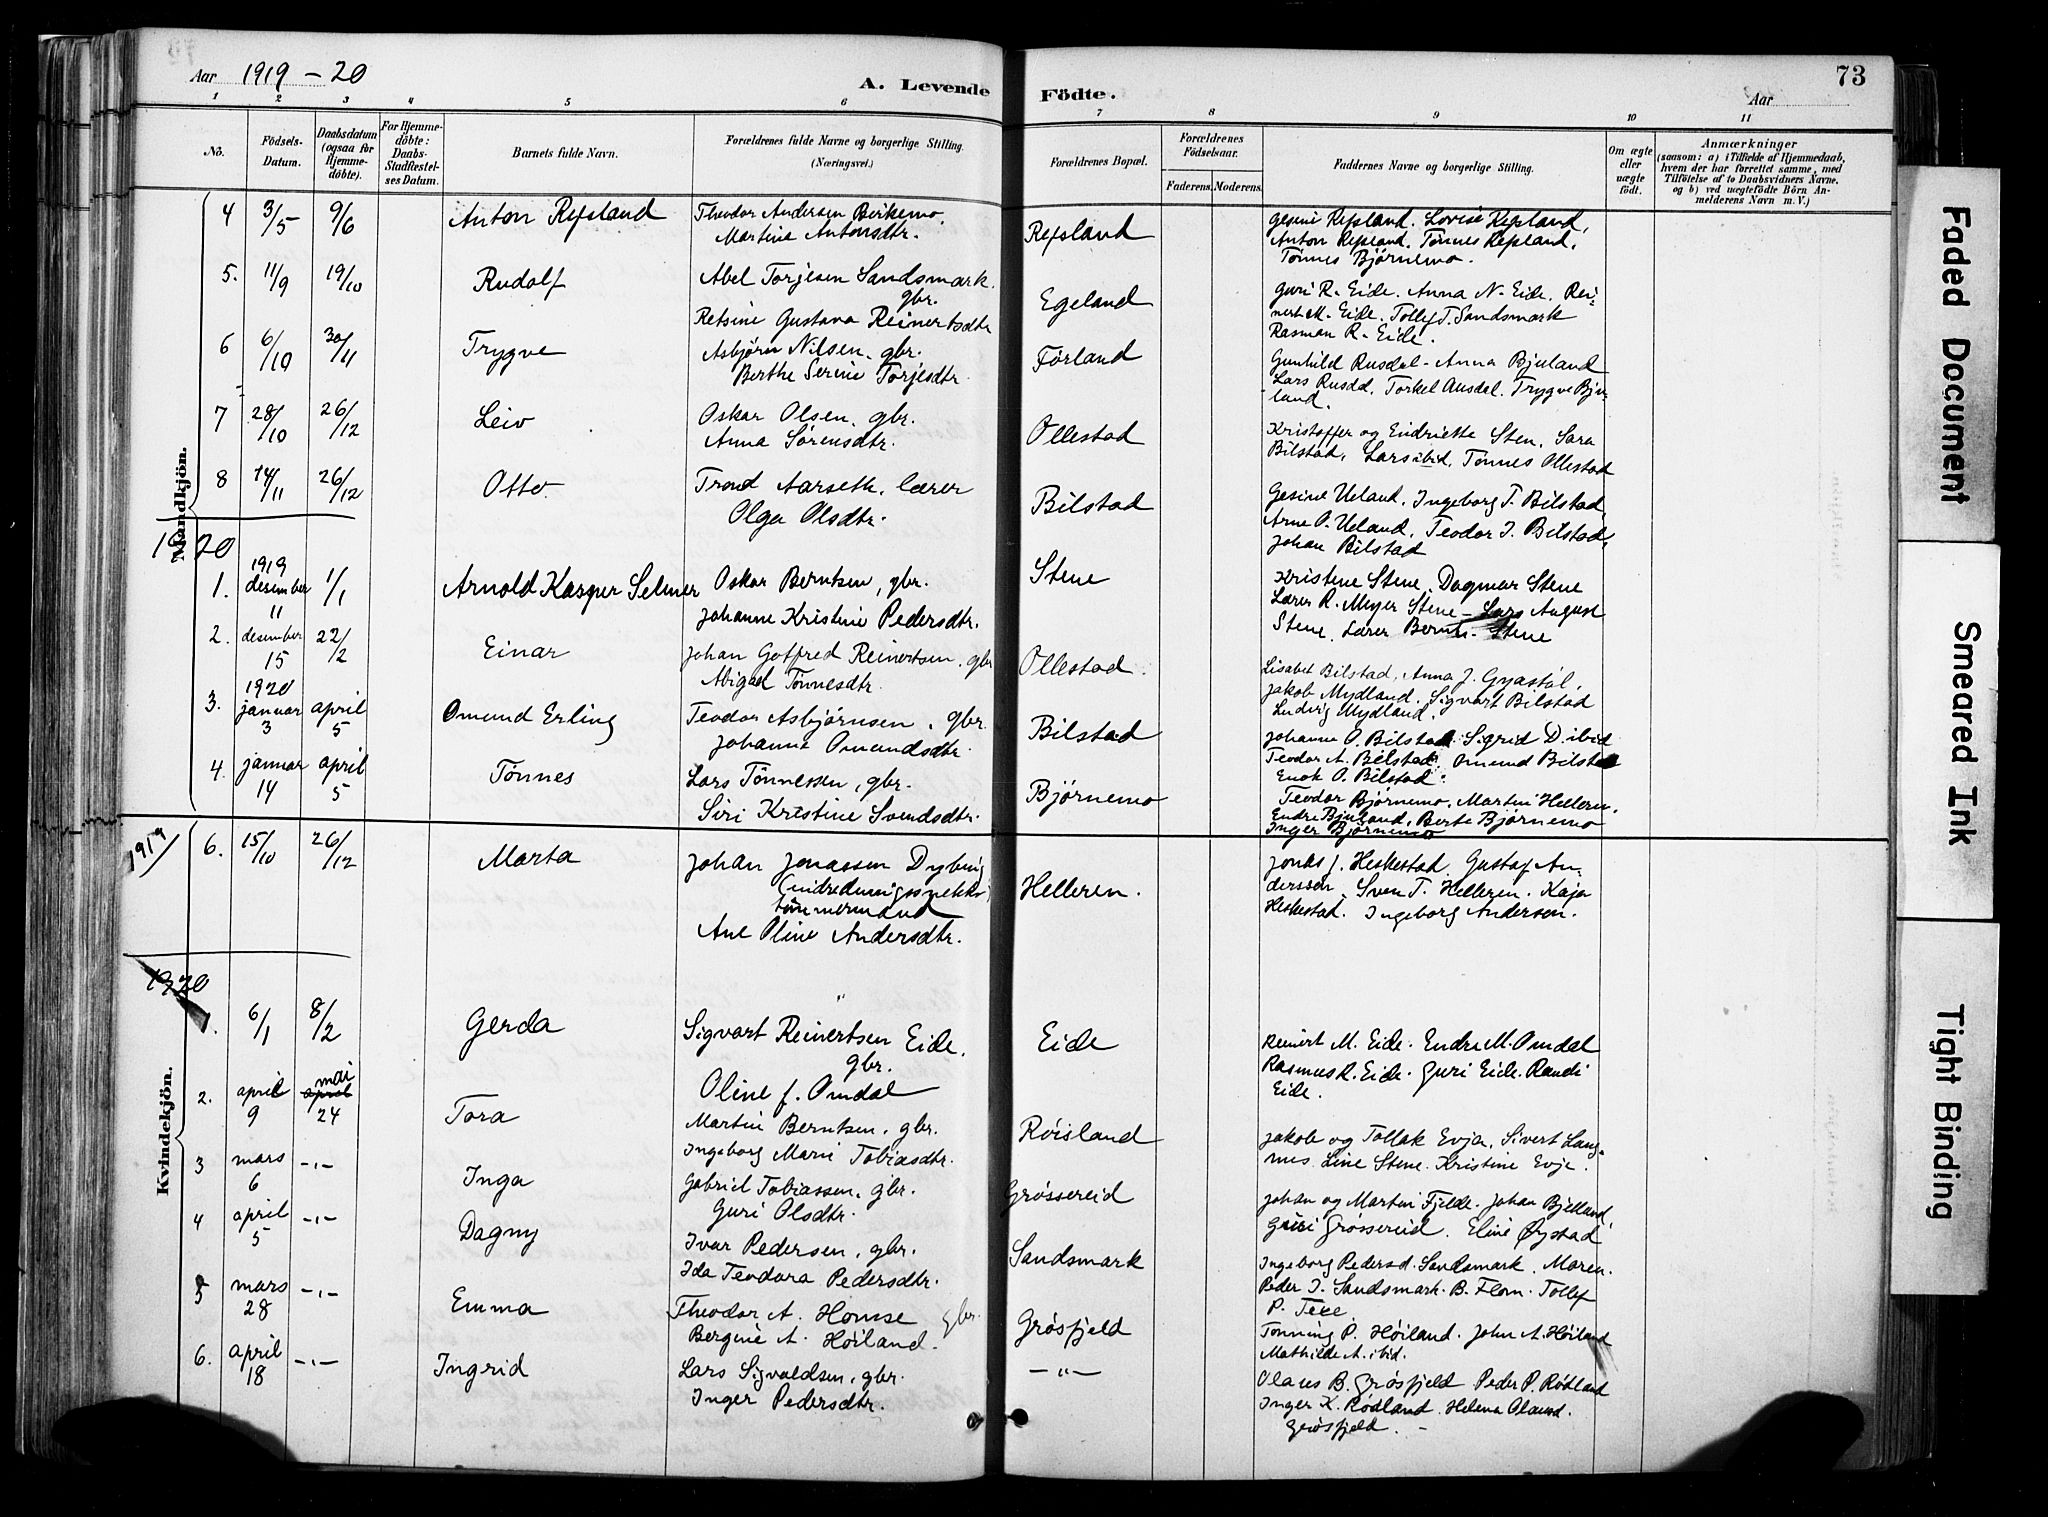 Aar 1919 - 20
A. Levende Födte.
73
Aar
1 2 3 4 5 6 7 8 9 10 11
No.
Födsels-Datum.
Daabsdatum (ogsaa for Hjemme-döbte).
For Hjemme-döbte: Daabs-Stadfæstel-ses Datum.
Barnets fulde Navn.
Forældrenes fulde Navne og borgerlige Stilling. (Næringsvei.)
Forældrenes Bopæl.
Forældrenes Födselsaar.
Faderens. Moderens.
Faddernes Navne og borgerlige Stilling.
Om ægte eller uægte födt.
Anmærkninger
(saasom: a) i Tilfælde af Hjemmedaab, hvem der har forrettet samme, med Tilföielse af to Daabsvidners Navne, og b) ved uægtefödte Börn An-melderens Navn m. V.)
Mandkjön.
4 3/5 9/6 Anton Refsland Theodor Andersen Birkemo. Refsland Gesine Refsland. Lovise Refsland,
Martine Antonsdtr. Anton Refsland. Tønnes Refsland.
Tønnes Bjørnemo.
5. 11/9 19/10 Rudolf Abel Torjesen Sandsmark. gbr. Egeland Guri R. Eide. Anna N. Eide. Rei-
Retsine Gustava Reinertsdtr nert M. Eide. Tollef T. Sandsmark
Rasman R. Eide.
6 6/10 30/11 Trygve Asbjørn Nilsen. gbr. Førland Gunhild Rusdal - Anna Bjuland
Berthe Serine Torjesdtr. Lars Rusdal, Torkel Ausdal. Trygve Bju-
land.
7 28/10 26/12 Leiv Oskar Olsen, gbr. Ollestad Kristoffer og Endriette Sten. Sara
Anna Sørensdtr. Bilstad, Lars ibid, Tønnes Ollestad
8 14/11 26/12 Otto. Trond Aarseth. lærer Bilstad Gesine Ueland, Ingeborg T. Bilstad,
Olga Olsdtr. Arne O. Ueland, Teodor J. Bilstad,
Johan Bilstad
1920
1. 1919 desember 11 1/1 Arnold Kasper Selmer Oskar Berntsen, gbr. Stene Kristine Stene, Dagmar Stene
Johanne Kristine Pedersdtr. Lærer R. Meyer Stene - Lars August
Stene. Lærer Bernt Stene
2. desember 15 22/2 Einar Johan Gotfred Reinertsen. gbr Ollestad. Lisabet Bilstad, Anna J. Gyastøl,
Abigael Tønnesdtr. Jakob Mydland. Sigvart Bilstad
Ludvig Mydland.
3. 1920 januar 3 april 5 Omund Erling Teodor Asbjørnsen. gbr. Bilstad Johanne O. Bilstad Sigrid D. ibid
Johanne Omundsdtr. Teodor A. Bilstad. Omund Bilstad
Enok O. Bilstad.
4. januar 14 april 5 Tønnes Lars Tønnessen, gbr. Bjørnemo Teodor Bjørnemo, Martin Helleren.
Siri Kristine Svendsdtr. Endre Bjuland, Berte Bjørnemo
Inger Bjørnemo
1919/
Kvindekjön.
6. 15/10 26/12 Marta Johan Jonassen Dybing Helleren. Jonas J. Heskestad. Gustaf An-
(indredningssnekker) derssen, Sven T. Helleren. Kaja
tømmermand Heskestad. Ingeborg Andersen.
Ane Oline Andersdtr.
1920
1. 6/1 8/2 Gerda Sigvart Reinertsen Eide. gbr. Eide Reinert M. Eide. Endre M. Omdal
Oline f. Omdal Rasmus R. Eide. Guri Eide. Randi
Eide.
2. april 9 mai april 24 Tora Martin Berntsen, gbr. Røisland Jakob og Tollak Evja, Sivert Lang-
Ingeborg Marie Tobiasdtr. nes. Line Stene. Kristine Evje.
3 mars 6 -"- Inga Gabriel Tobiassen, gbr. Grøssereid Johan og Martin Fjelde. Johan Bjelland,
Guri Olsdtr. Guri Grøssereid. Eline Øystad
4 april 5 -"- Dagny Ivar Pedersen, gbr. Sandsmark Ingeborg Pedersd. Sandsmark. Maren.
Ida Teodora Pedersdtr. Peder I. Sandsmark. B. Flom. Tollef
P.
5 mars 28 -"- Emma Theodor A. Homse gbr. Grøsfjeld Tonning P. Høiland. John A. Høiland
Bergine A. Høiland. Mathilde A. ibid.
6. april 18 -"- Ingrid Lars Sigvaldsen, gbr. -"- Olaus B. Grøsfjeld Peder P. Rødland
Inger Pedersdtr. Inger K. Rødland. Helena Olausd.
Grøsfjeld.
Faded Document
Smeared Ink
Tight Binding